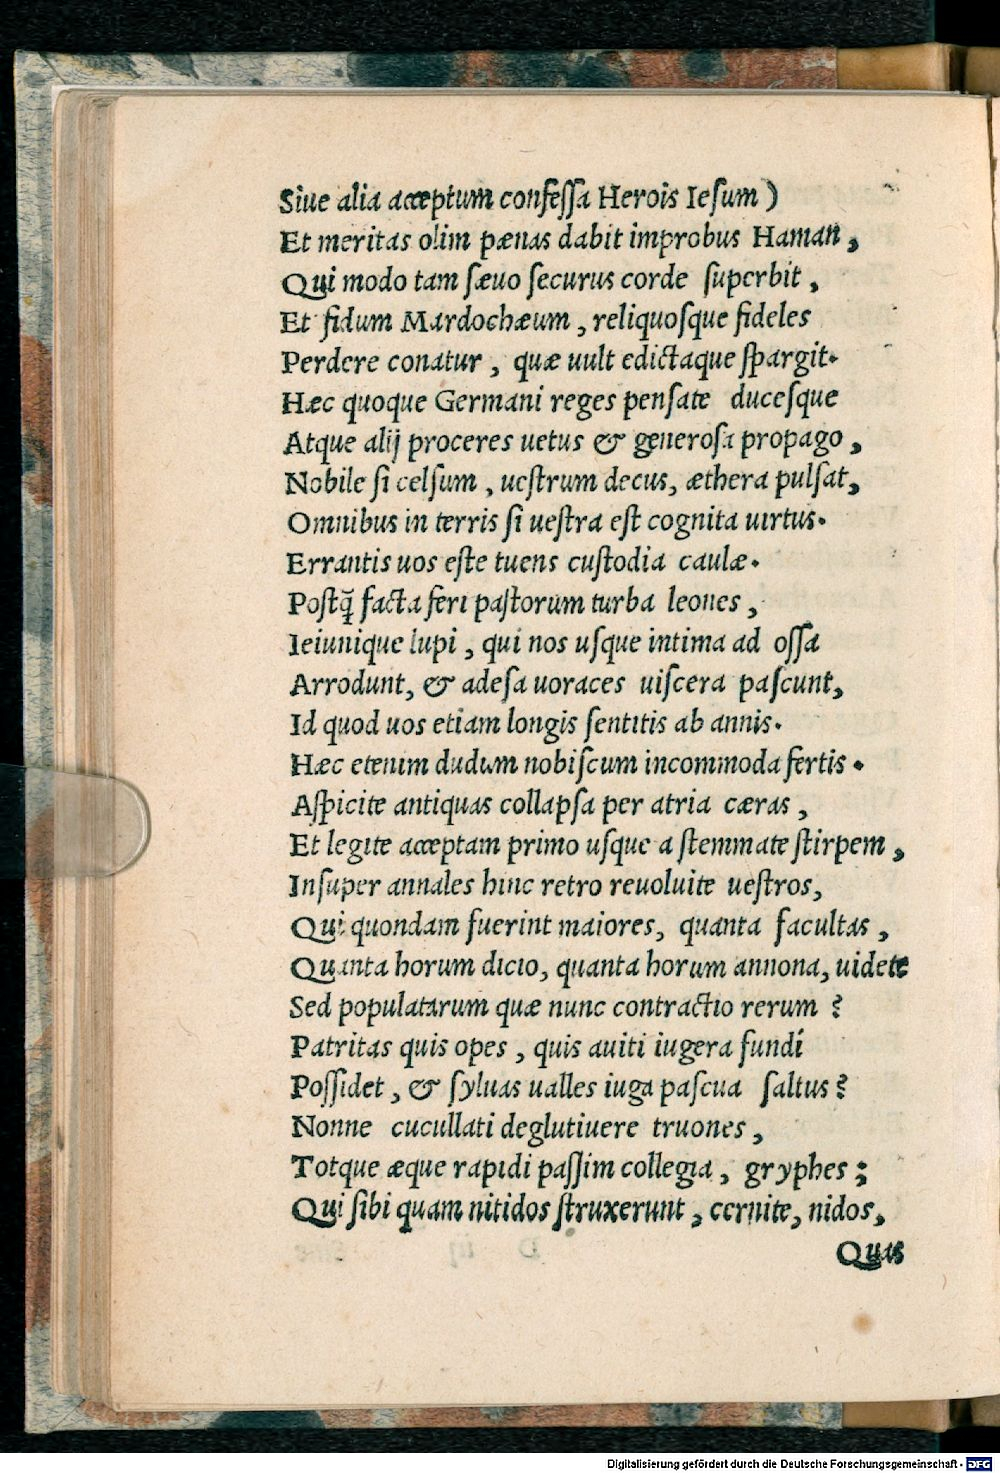 Siue alia acceptum confessa Herois Iesum)
Et meritas olim pœnas dabit improbus Haman,
Qui modo tam sæuo securus corde superbit,
Et fidum Mardochæum, reliquosque fideles
Perdere conatur, quæ uult edictaque spargit.
Hæc quoque Germani reges pensate ducesque
Atque alij proceres uetus & generosa propago,
Nobile si celsum, uestrum decus, æthera pulsat,
Omnibus in terris si uestra est cognita uirtus.
Errantis uos este tuens custodia caulæ.
Postq̃ facta feri pastorum turba leones,
Ieiunique lupi, qui nos usque intima ad ossa
Arrodunt, & adesa uoraces uiscera pascunt,
Id quod uos etiam longis sentitis ab annis.
Hæc etenim dudum nobiscum incommoda fertis.
Aspicite antiquas collapsa per atria cæras,
Et legite acceptam primo usque a stemmate stirpem,
Insuper annales hinc retro reuoluite uestros,
Qui quondam fuerint maiores, quanta facultas,
Quanta horum dicio, quanta horum annona, uidete
Sed populatarum quæ nunc contractio rerum?
Patritas quis opes, quis auiti iugera fundi
Possidet, & syluas ualles iuga pascua saltus?
Nonne cucullati deglutiuere truones,
Totque æque rapidi passim collegia, gryphes;
Qui sibi quam nitidos struxerunt, cernite, nidos,
Quas
Digitalisierung gefördert durch die Deutsche Forschungsgemeinschaft - DFG